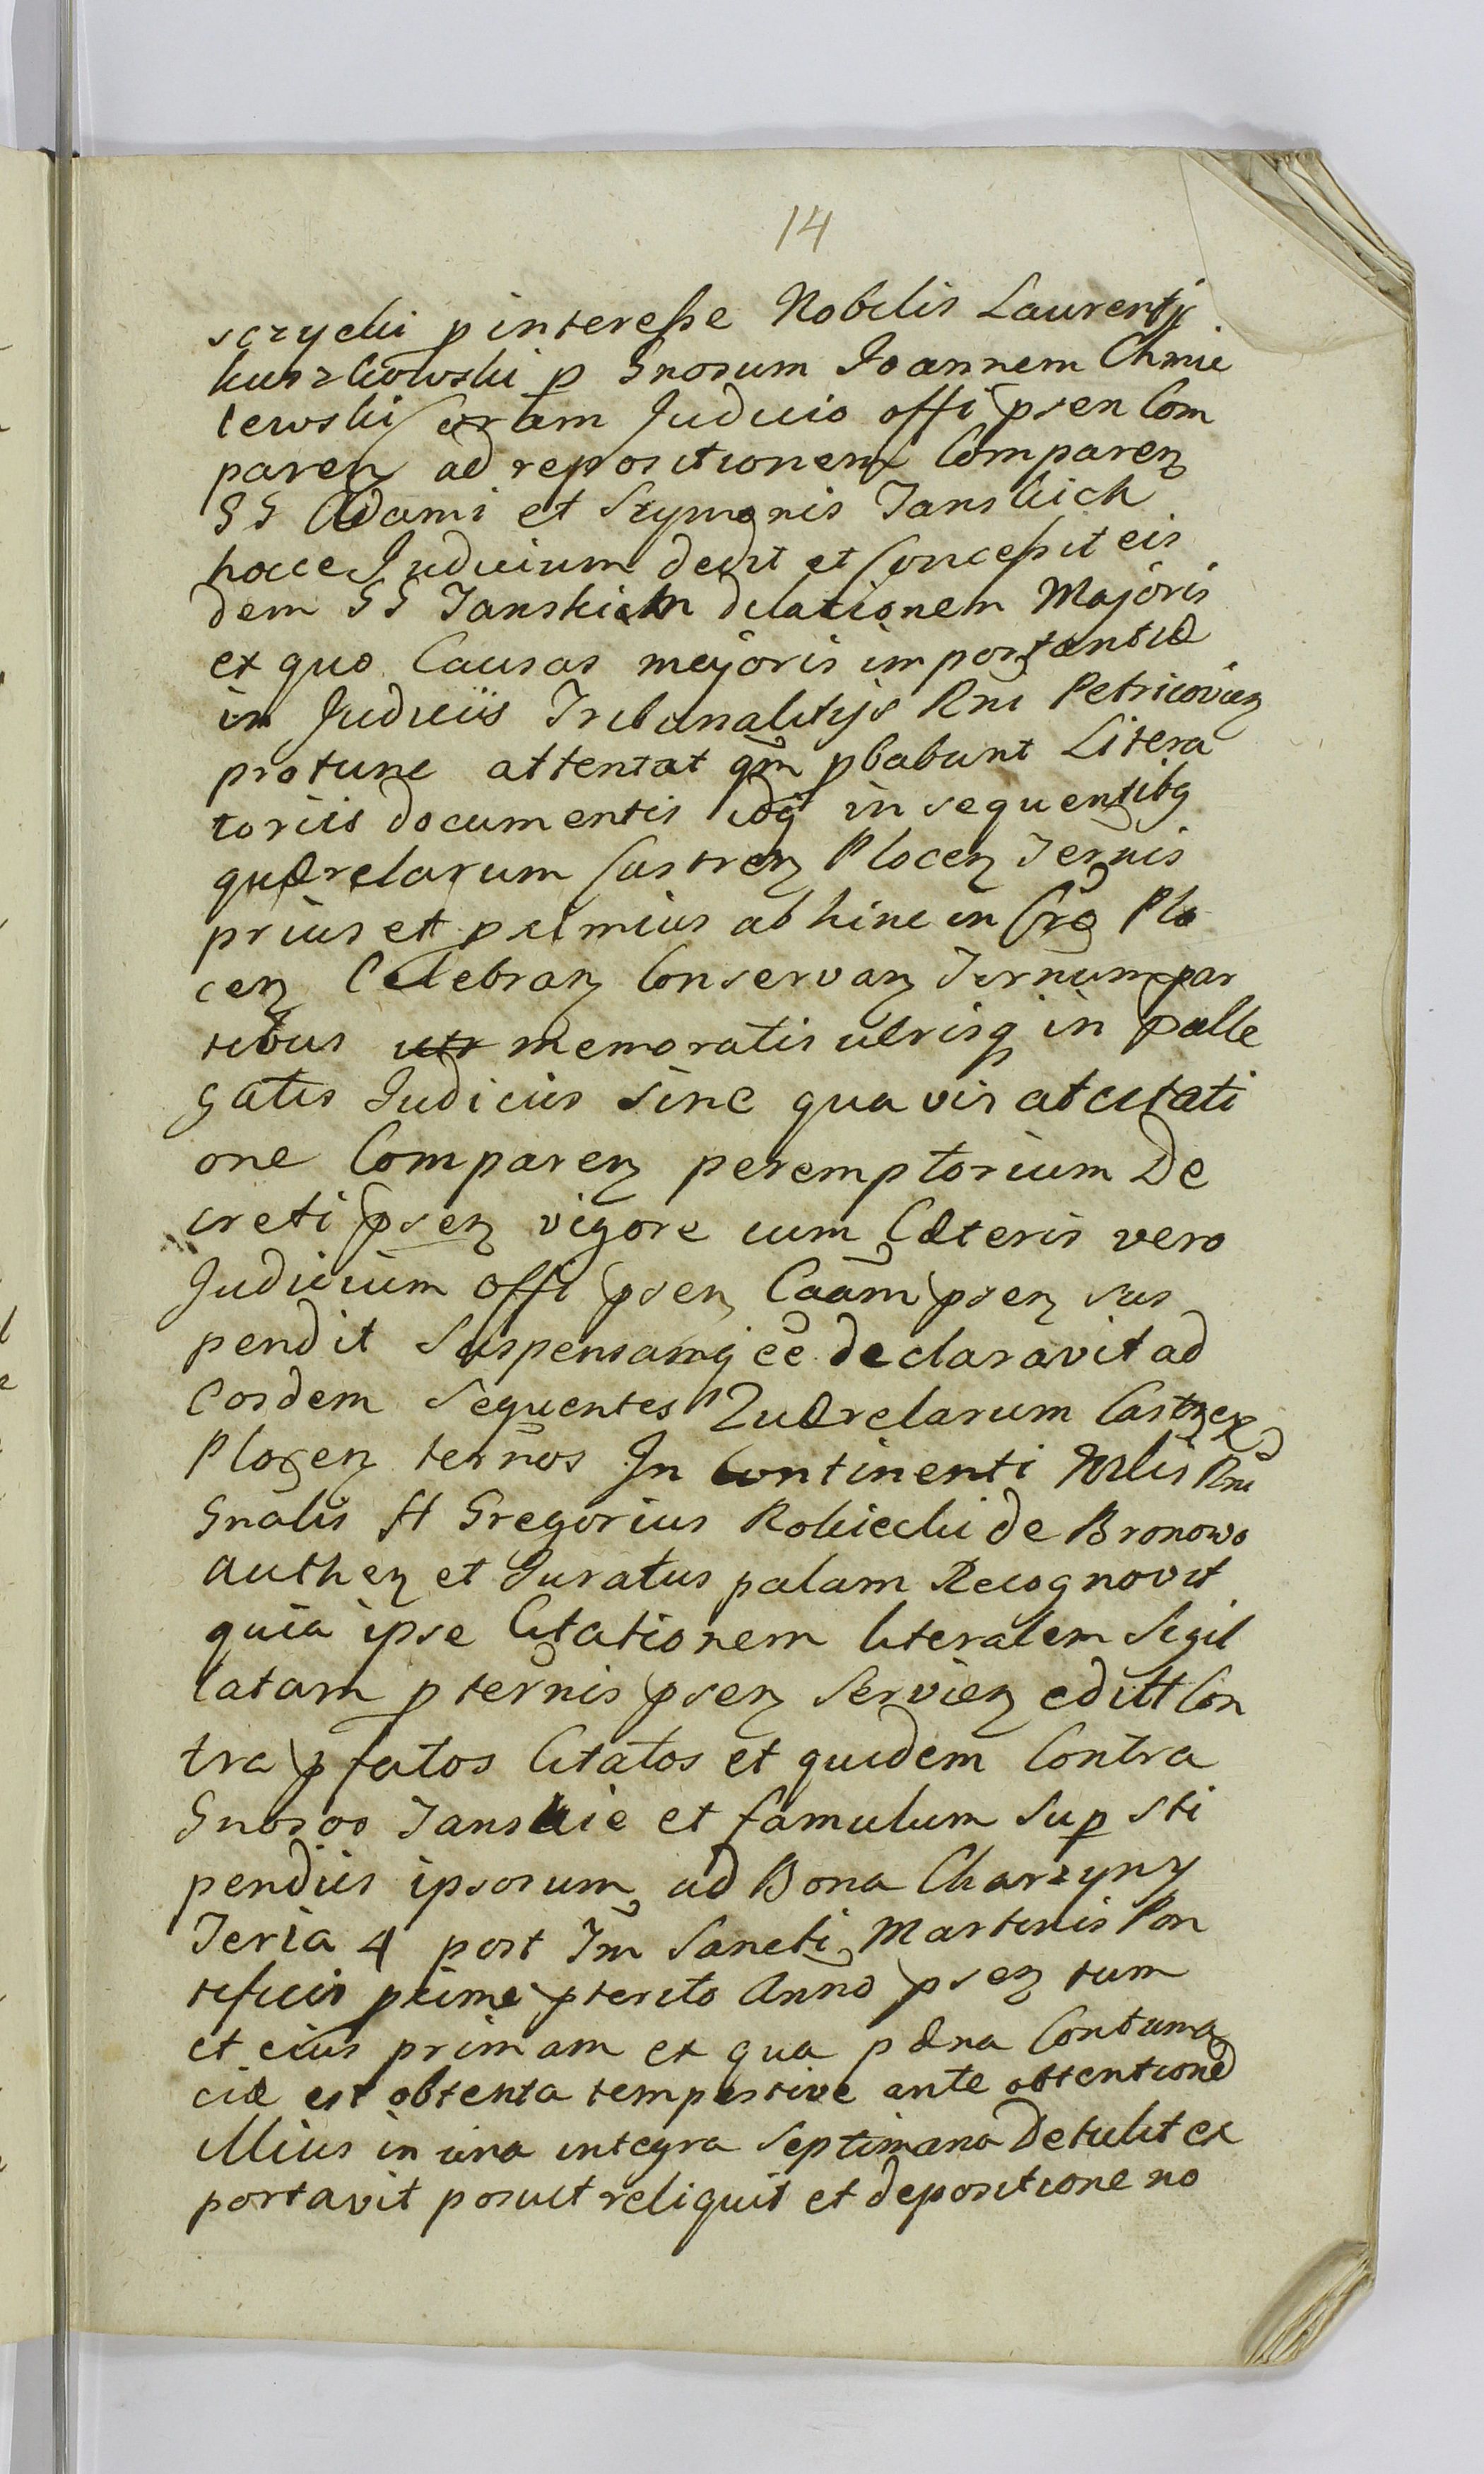 14
sczycki p interesse Nobilis Laurentij
Kuszkowski p Gnosum Joannem Chmie
lewski coram Judicio offi psen Com
paren ad repositionem Comparen
GG Adami et Szymonis Janskich
hocce Judicium dedit et Concessit eis
dem GG Janskich dilationem Majoris
ex quo Causas majoris importantiæ
in Judiciis Tribunalitijs Rni Petricovien
protunc attentat qm pbabunt Litera
toriis documentis idq in sequentibq
quærelarum Castren Plocen Termis
prius et primius ab hinc in Cro Plo
cen Celebran Conservan Termum par
tibus utr memoratis utrisq in palle
gatis Judiciis sine qua vis adcitati
one Comparen peremptorium De
creti psen vigore cum Cæteris vero
Judicium offi psen Caam psen sus
pendit Suspensamq ee declaravit ad
eosdem Sequentes Quærelarum Castren
Plocen termos In Continenti Mlis Rni
Gnalis H Gregorius Rokicki de Bronowo
authen et Juratus palam Recognovit
quia ipse Citationem literalem Sigil
latam p termis psen Servien edidit Con
tra pfatos Citatos et quidem Contra
Gnosos Janskie et famulum Sup sti
pendiis ipsorum ad Bona Charzyny
Feria 4 post Fm Sancti Martinis Pon
tificis prime pterito Anno psen tum
et eius primam ex qua pæna Contuma
ciæ est obtenta tempestive ante obtentione
illius in una integra Septimana Detulit ex
portavit posuit reliquit et depositione no